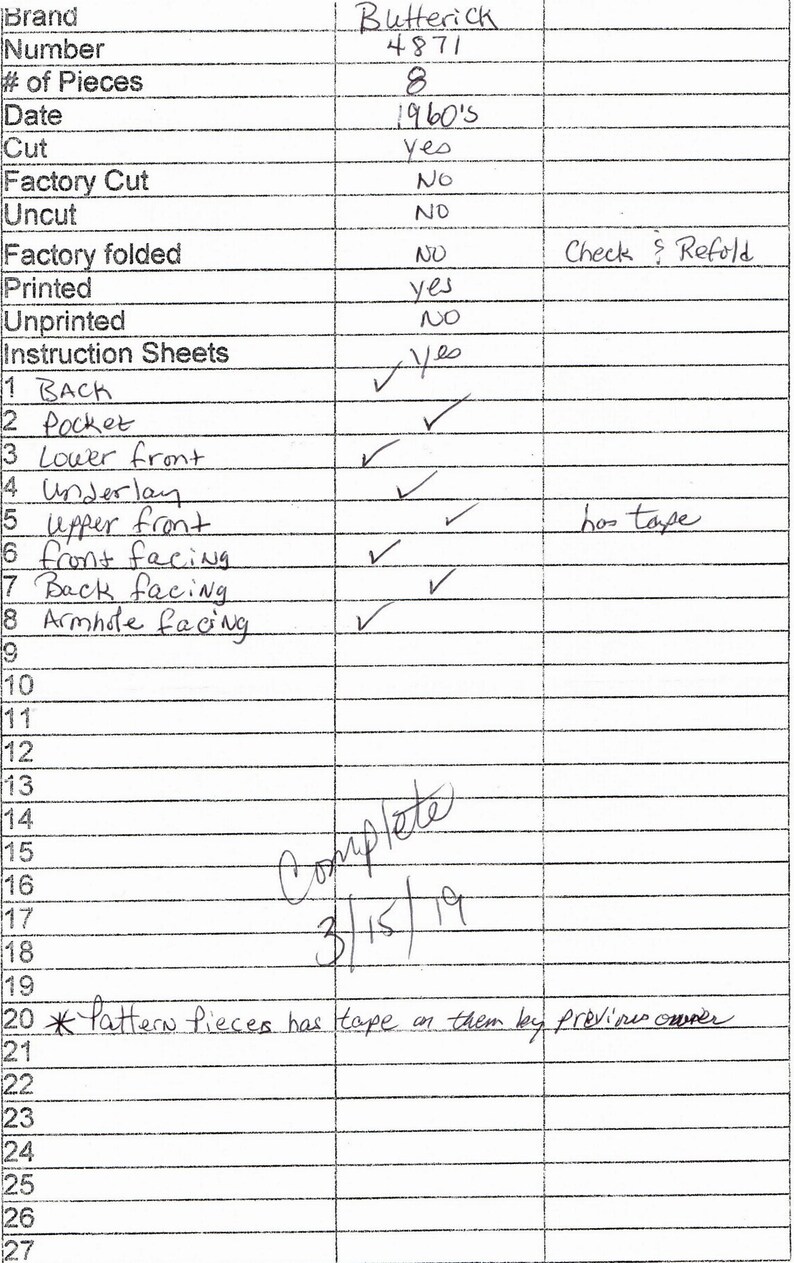 Brand Butterick
Number 4871
# of Pieces 8
Date 1960's
Cut yes
Factory Cut NO
Uncut NO
Factory folded NO Check & Refold
Printed yes
Unprinted NO
Instruction Sheets yes
1 BACK ✓
2 Pocket ✓
3 Lower front ✓
4 Underlay ✓
5 upper front ✓ has tape
6 front facing ✓
7 Back facing ✓
8 Armhole facing ✓
9
10
11
12
13
14
Complete
15
16
17
3/15/19
18
19
20 * Pattern Pieces has tape on them by previous owner
21
22
23
24
25
26
27